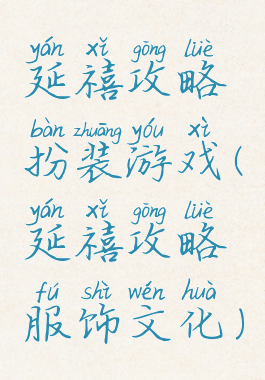 yán xǐ gōng lüè
延禧攻略
bàn zhuāng yóu xì
扮装游戏(
yán xǐ gōng lüè
延禧攻略
fú shì wén huà
服饰文化)